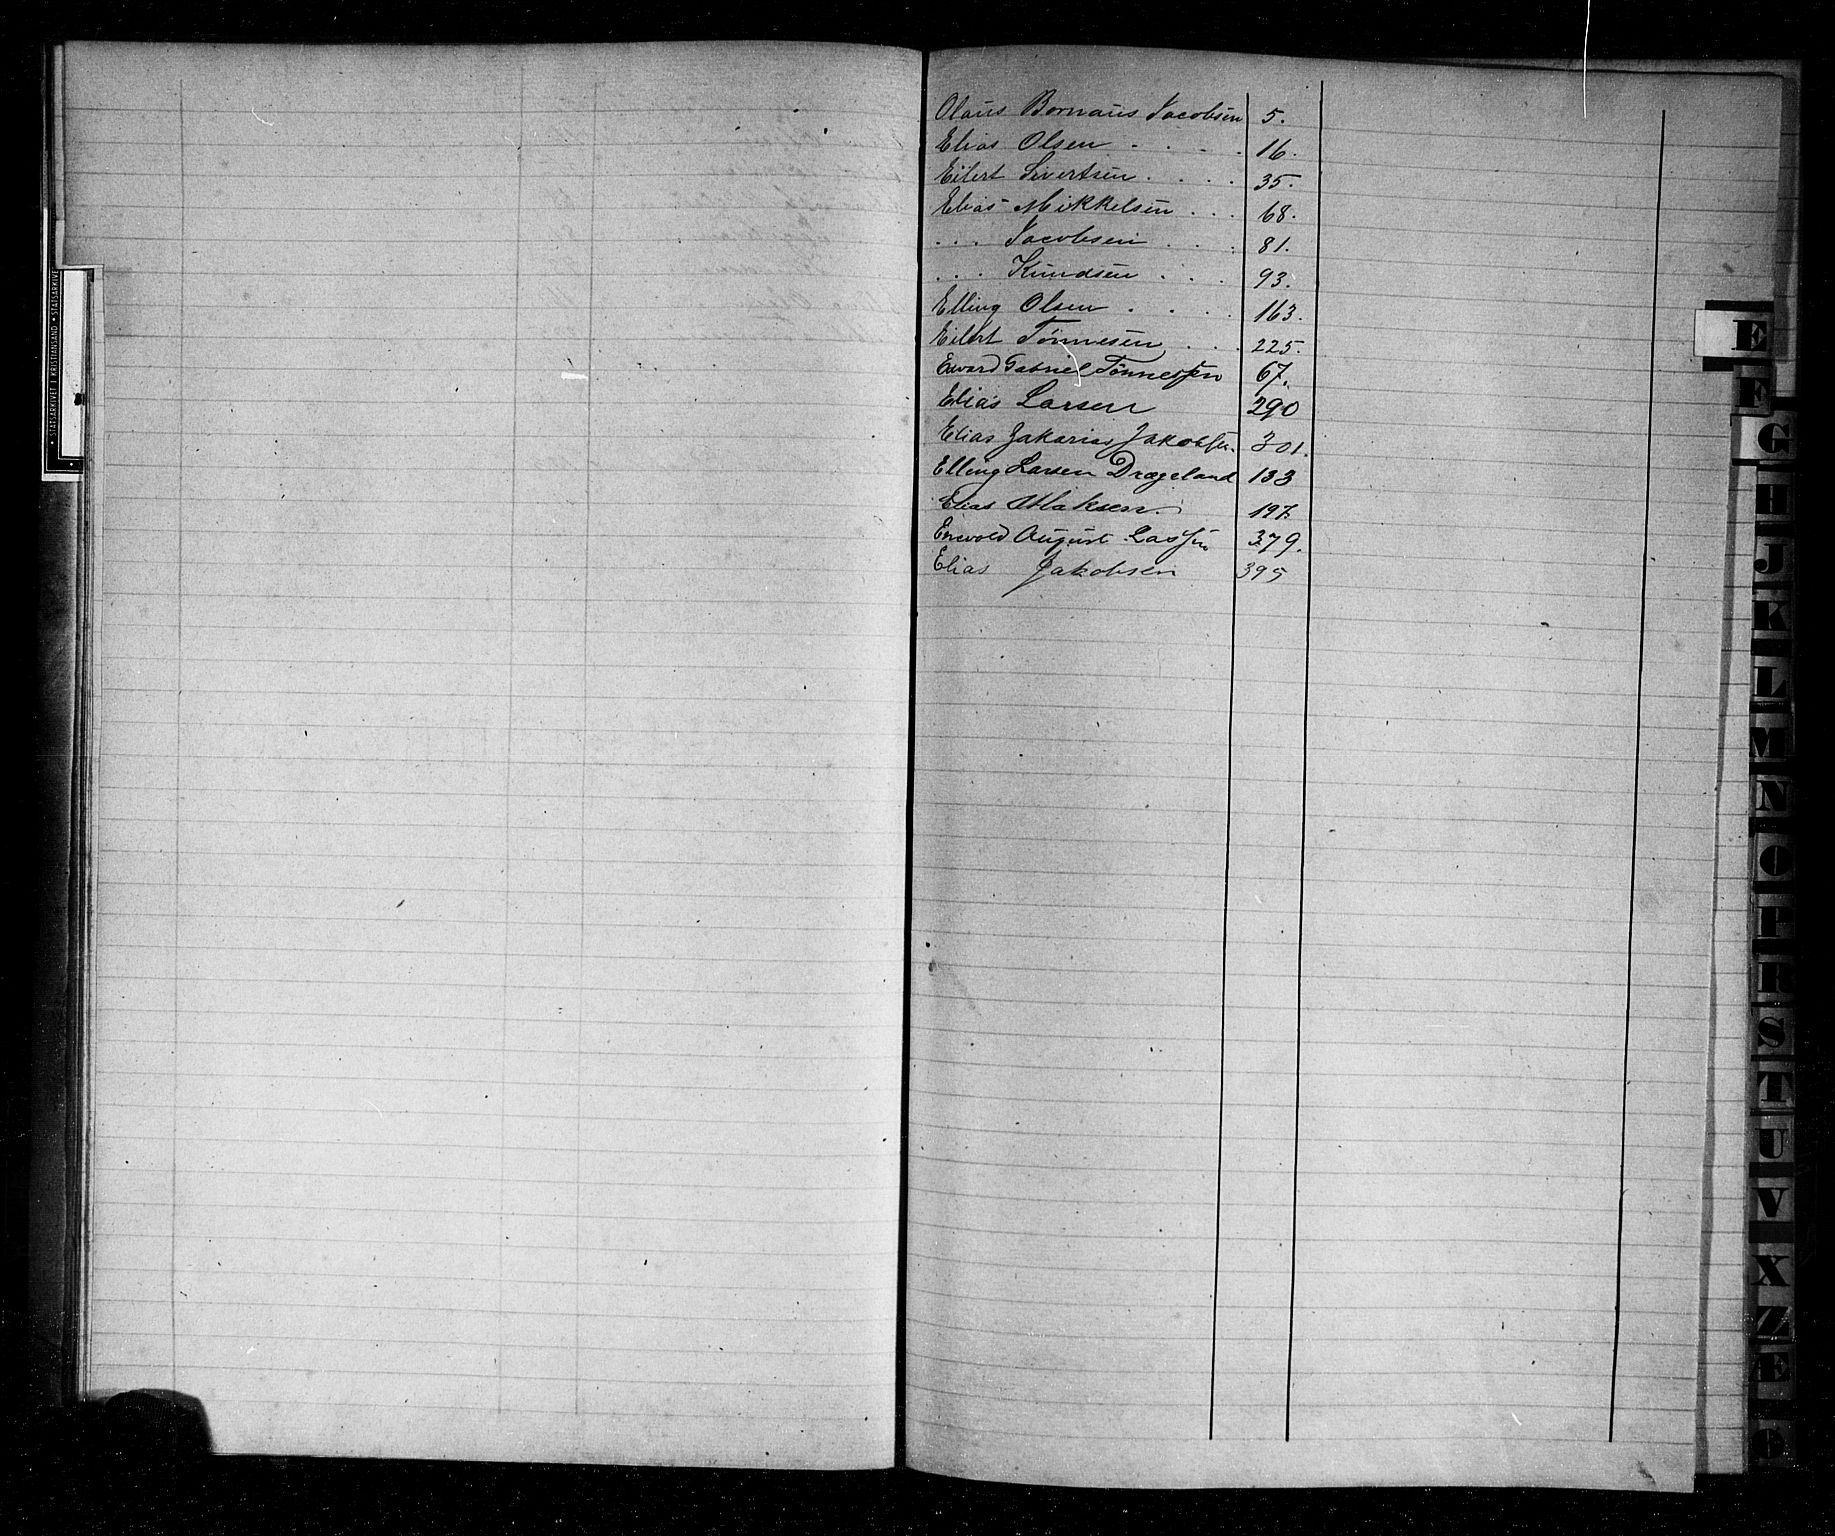 Olaus Bornaus Jacobsen 5.
Elias Olsen . . . . 16.
Eilert Sivertsen . . . . 35.
Elias Mikkelsen . . . 68.
. . . Jacobsen . . . 81.
. . . Knudsen . . . 93.
Elling Olsen . . . . 163.
Eilert Tønnesen . . . 225.
Edvard Gabriel Tønnessen 67.
Elias Larsen 290
Elias Zakarias Jakobsen 301.
Elling Larsen Drægeland 133
Elias Aslaksen. 197.
Enevold August Lassen 379.
Elias Jakobsen 395
E
F
G
H
J
K
L
M
N
O
P
R
S
T
U
V
X
Z
Æ
Ø
• STATSARKIVET I KRISTIANSAND • STATSARKIVET